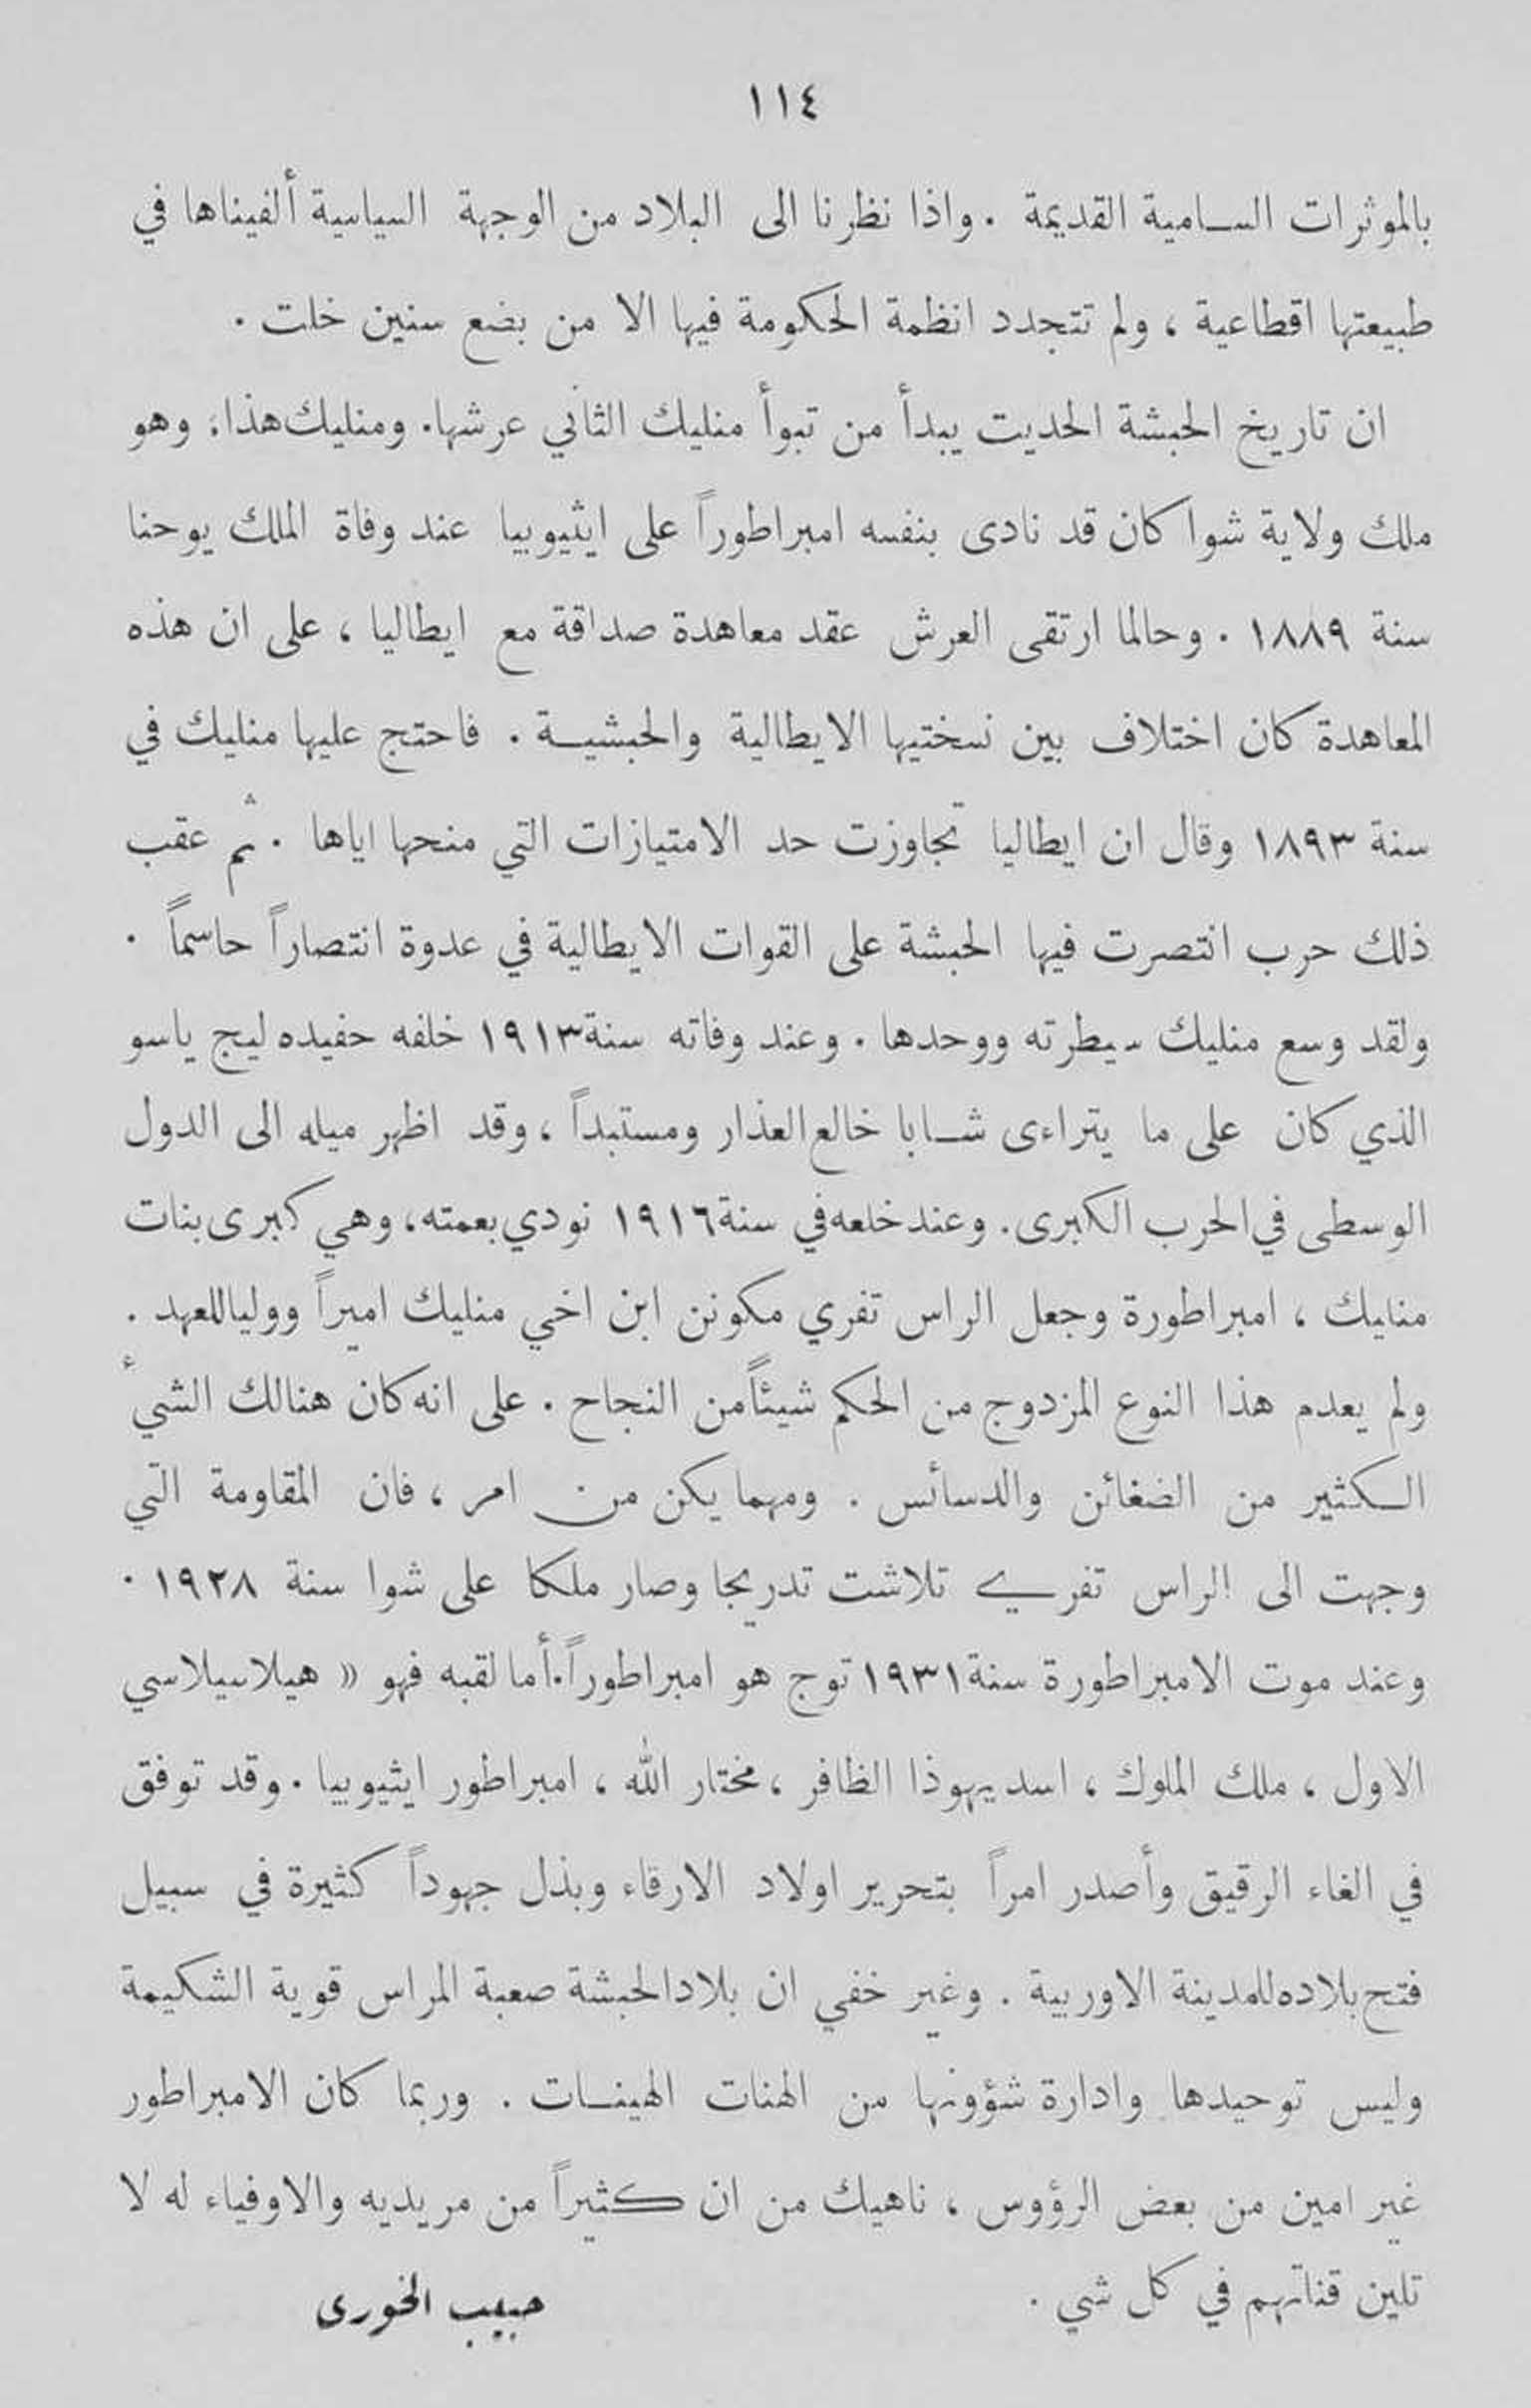 ١١٤
بالموثرات السامية القديمة . واذا نظرنا الى البلاد من الوجهة السياسية ألفيناها في
طبيعتها اقطاعية ، ولم تتجدد انظمة الحكومة فيها الا من بضع سنين خلت .
ان تاريخ الحبشة الحديت يبدأ من تبوأ منليك الثاني عرشها. ومنليك هذا، وهو
ملك ولاية شوا كان قد نادى بنفسه امبراطوراً على ايثيوبيا عند وفاة الملك يوحنا
سنة ١٨٨٩ . وحالما ارتقى العرش عقد معاهدة صداقة مع ايطاليا ، على ان هذه
المعاهدة كان اختلاف بين نسختيها الايطالية والحبشية . فاحتج عليها منليك في
سنة ١٨٩٣ وقال ان ايطاليا تجاوزت حد الامتيازات التي منحها اياها . ثم عقب
ذلك حرب انتصرت فيها الحبشة على القوات الايطالية في عدوة انتصاراً حاسماً .
ولقد وسع منليك سيطرته ووحدها . وعند وفاته سنة ١٩١٣ خلفه حفيده ليج ياسو
الذي كان على ما يتراءى شابا خالع العذار ومستبداً ، وقد اظهر ميله الى الدول
الوسطى في الحرب الكبرى . وعند خلعه في سنة ١٩١٦ نودي بعمته، وهي كبرى بنات
منليك ، امبراطورة وجعل الراس تفري مكونن ابن اخي منليك اميراً ووليا للعهد .
ولم يعدم هذا النوع المزدوج من الحكم شيئاً من النجاح . على انه كان هنالك الشيء
الكثير من الضغائن والدسائس . ومهما يكن من امر ، فان المقاومة التي
وجهت الى الراس تفري تلاشت تدريجا وصار ملكا على شوا سنة ١٩٢٨ .
وعند موت الامبراطورة سنة ١٩٣١ توج هو امبراطوراً. أما لقبه فهو « هيلاسيلاسي
الاول ، ملك الملوك ، اسد يهوذا الظافر ، مختار الله ، امبراطور ايثيوبيا . وقد توفق
في الغاء الرقيق وأصدر امراً بتحرير اولاد الارقاء وبذل جهوداً كثيرة في سبيل
فتح بلاده للمدينة الاوربية . وغير خفي ان بلاد الحبشة صعبة المراس قوية الشكيمة
وليس توحيدها وادارة شؤونها من الهنات الهينات . وربما كان الامبراطور
غير امين من بعض الرؤوس ، ناهيك من ان كثيراً من مريديه والاوفياء له لا
تلين قناتهم في كل شي .
حبيب الخورى